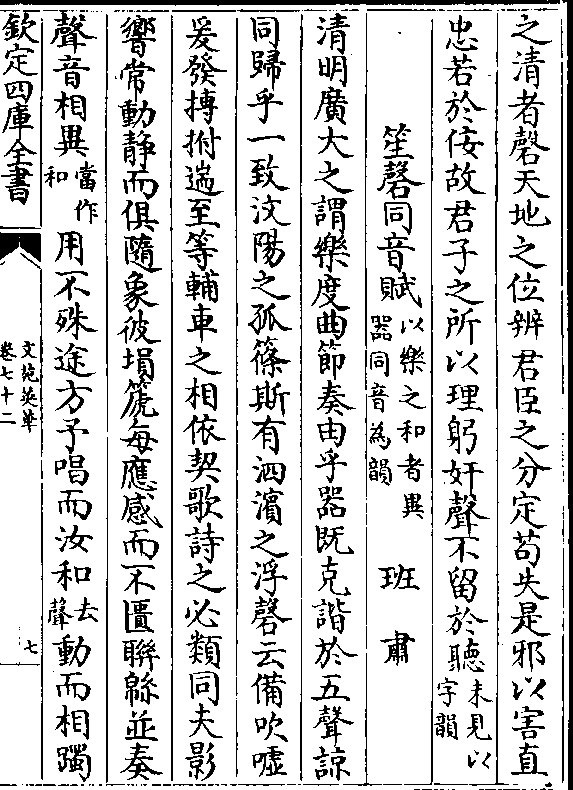 之清者磬天地之位辨君臣之分定苟失是邪以害直
忠若於佞故君子之所以理躬奸聲不留於聽未見以字韻
笙磬同音賦以樂之和者異器同音為韻 班肅
清明廣大之謂樂度曲節奏由乎器既克諧於五聲諒
同歸乎一致汶陽之孤篠斯有泗濱之浮磬云備吹噓
爰發搏拊遄至等輔車之相依契歌詩之必類同夫影
響常動靜而俱隨象彼塤箎每應感而不匱聯緜並奏
聲音相異當作和用不殊途方予唱而汝和去聲動而相躅
欽定四庫全書
文苑英華
卷七十二
七